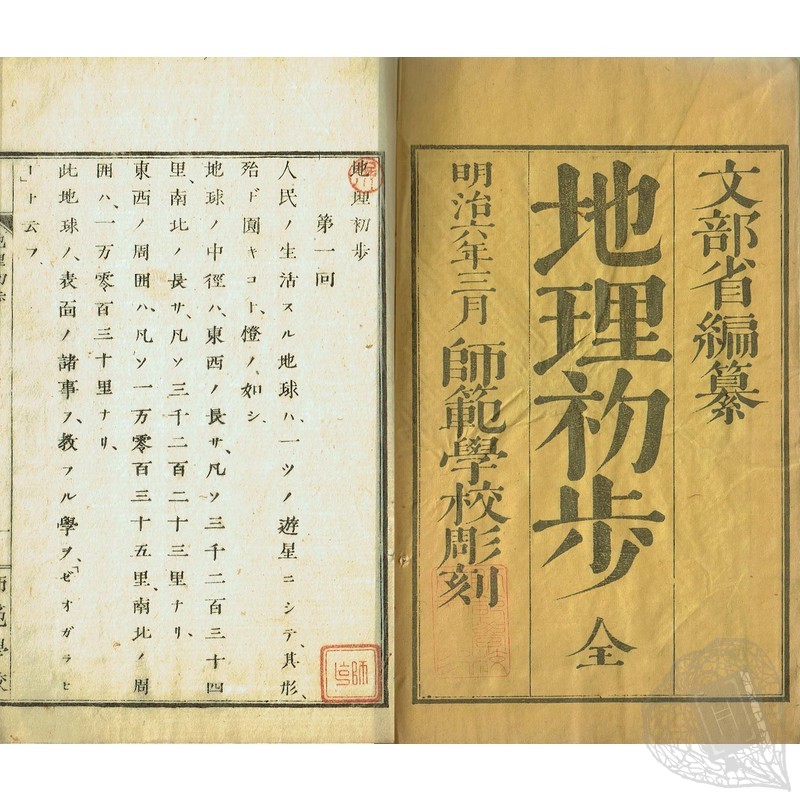 文部省編纂
地理初歩 全
明治六年三月 師範學校彫刻
地理初歩
第一回
人民ノ生活スル地球ハ、一ツノ遊星ニシテ、其形、
殆ド圓キコト、橙ノ如シ、
地球ノ中徑ハ、東西ノ長サ、凡ソ三千二百三十四
里、南北ノ長サ、凡ソ三千二百二十三里ナリ、
東西ノ周囲ハ、凡ソ一万零百三十五里、南北ノ周
囲ハ、一万零百三十里ナリ、
此地球ノ、表面ノ諸事ヲ、教フル學ヲ、「ゼオガラヒ
ー」ト云フ
地理初歩
一
師範學校